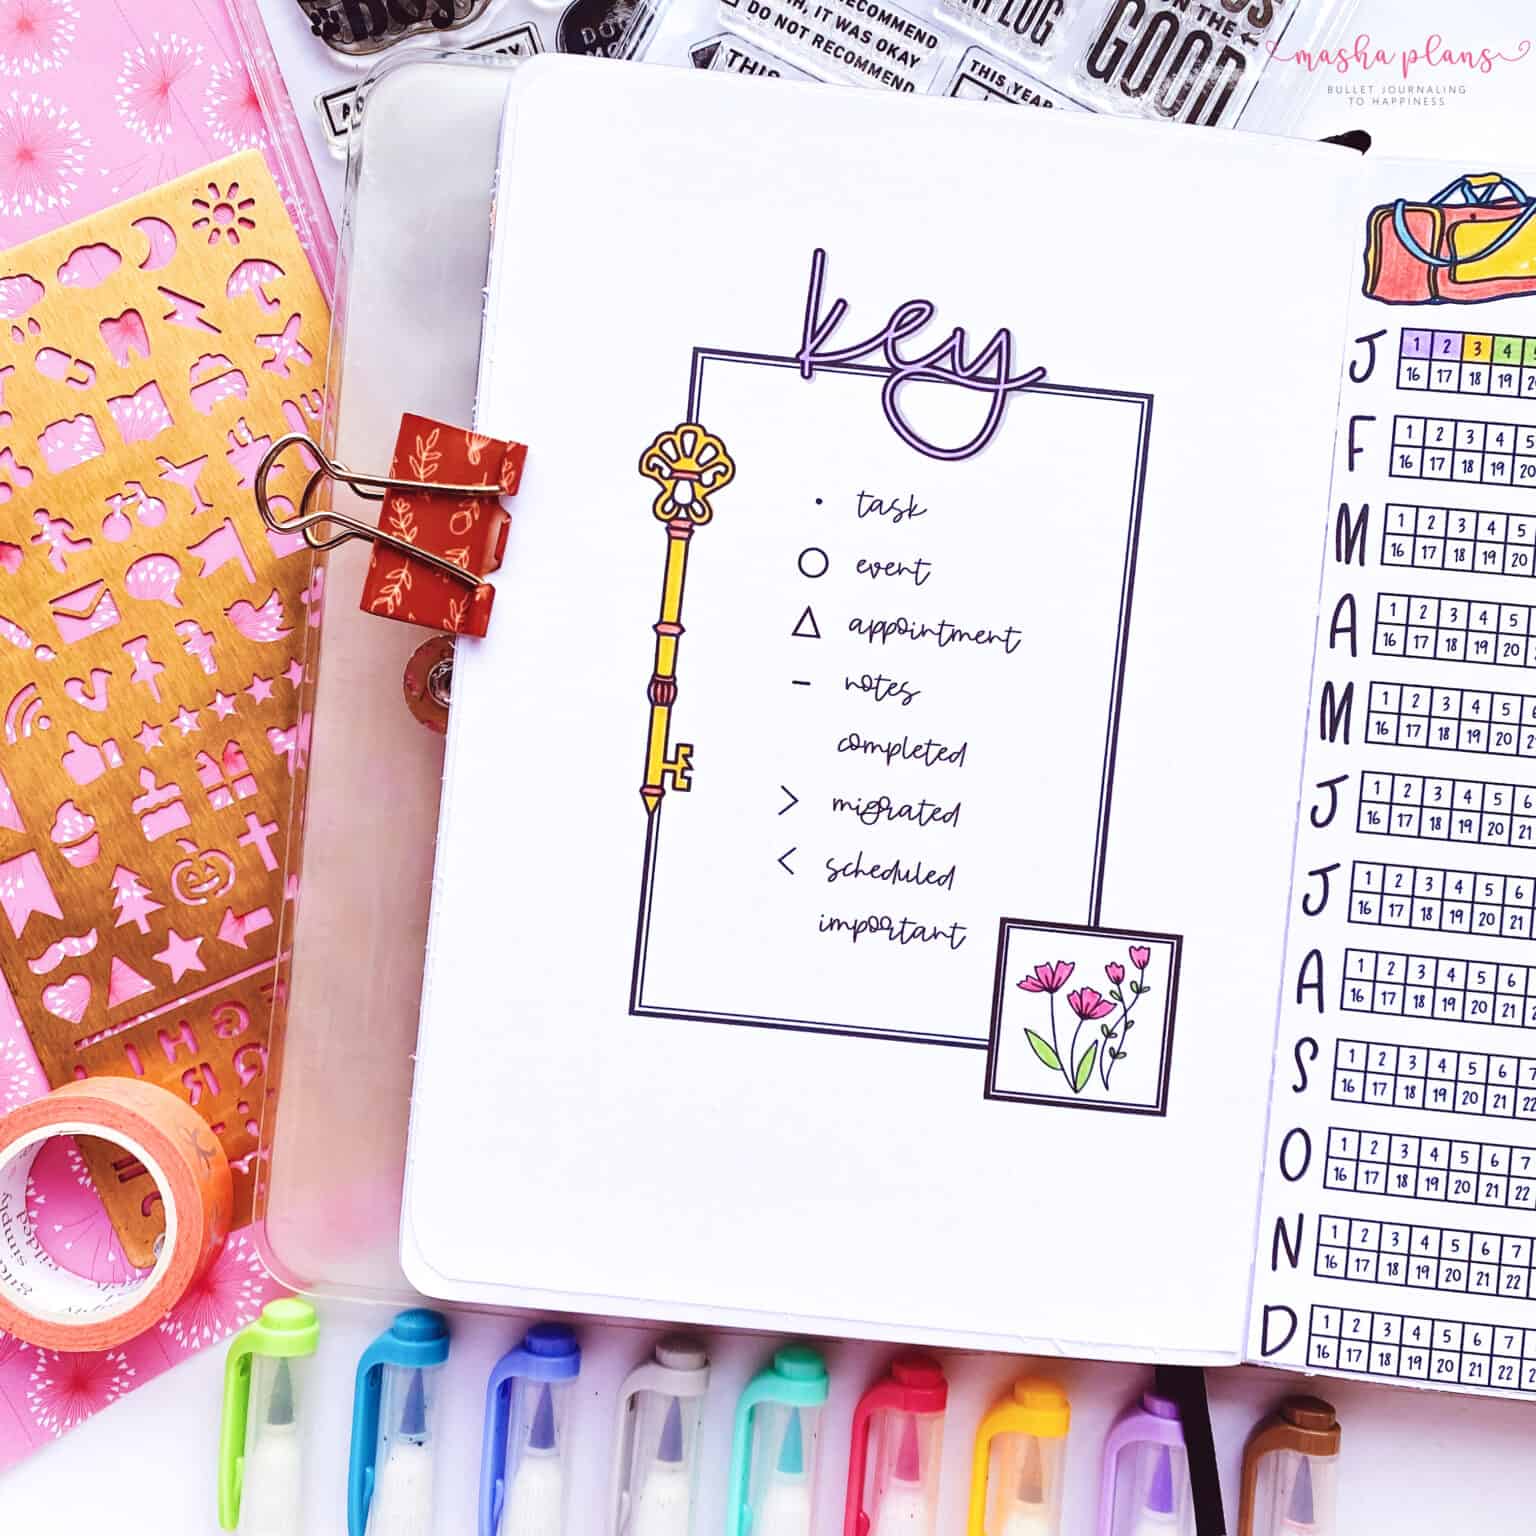 RECOMMEND
IH, IT WAS OKAY
DO NOT RECOMMEND
ON THE
GOOD
THIS
THIS YEAR
masha plans
BULLET JOURNALING
TO HAPPINESS
key
• task
○ event
△ appointment
– notes
completed
> migrated
< scheduled
important
J 1 2 3 4 5
16 17 18 19 20
F 1 2 3 4 5
16 17 18 19 20
M 1 2 3 4 5
16 17 18 19 20
A 1 2 3 4 5
16 17 18 19 20
M 1 2 3 4 5 6
16 17 18 19 20
J 1 2 3 4 5 6
16 17 18 19 20 21
J 1 2 3 4 5 6
16 17 18 19 20 21
A 1 2 3 4 5 6
16 17 18 19 20 21
S 1 2 3 4 5 6 7
16 17 18 19 20 21 22
O 1 2 3 4 5 6 7
16 17 18 19 20 21 22
N 1 2 3 4 5 6 7
16 17 18 19 20 21 22
D 1 2 3 4 5 6 7
16 17 18 19 20 21 22
simply
gilded